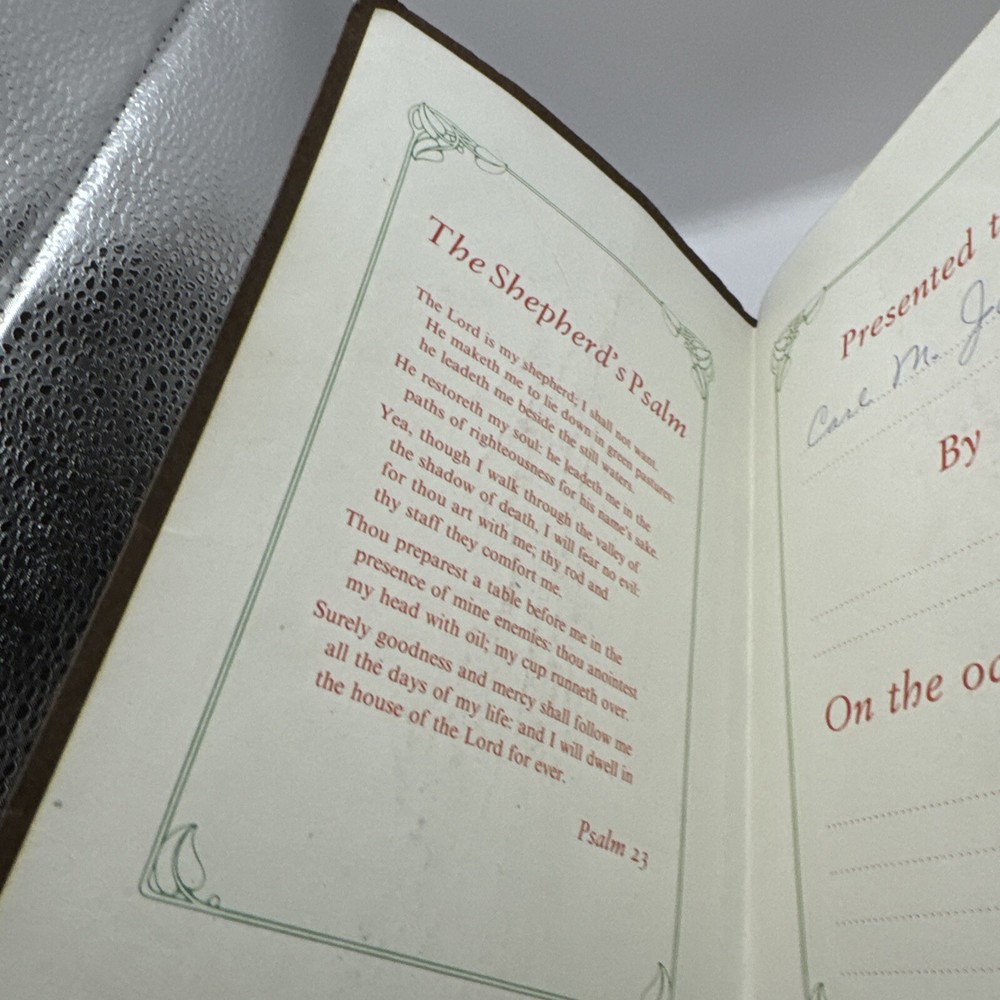 The Shepherd's Psalm
The Lord is my shepherd; I shall not want.
He maketh me to lie down in green pastures:
he leadeth me beside the still waters.
He restoreth my soul: he leadeth me in the
paths of righteousness for his name's sake.
Yea, though I walk through the valley of
the shadow of death, I will fear no evil:
for thou art with me; thy rod and
thy staff they comfort me.
Thou preparest a table before me in the
presence of mine enemies: thou anointest
my head with oil; my cup runneth over.
Surely goodness and mercy shall follow me
all the days of my life: and I will dwell in
the house of the Lord for ever.
Psalm 23
Presented t
M.
By
On the oc